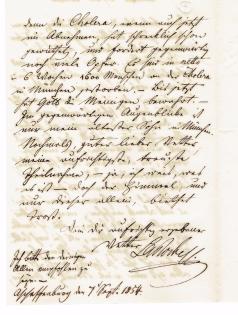 denn die Cholera, wenn auch jetzt
im Abnehmen, hat schrecklich schon
gewüthet, und fordert gegenwärtig
noch viele Opfer. Es sind in etwa
6 Wochen 1600 Menschen an der Cholera
in München gestorben. – Bis jetzt
hat Gott die Meinigen bewahrt. –
Im gegenwärtigen Augenblicke ist
nur mein ältester Sohn in München.
Nochmals, guter lieber Vetter
meine aufrichtigste, treueste
Theilnahme, – ja, ich weiß, was
es ist – doch der Himmel, und
nur dieser allein, biethet
Trost.
Ihr aufrichtig ergebener
Vetter
Ich bitte den Ihrigen
Allen empfohlen zu
seyn.
Aschaffenburg den 7 Sept. 1854.